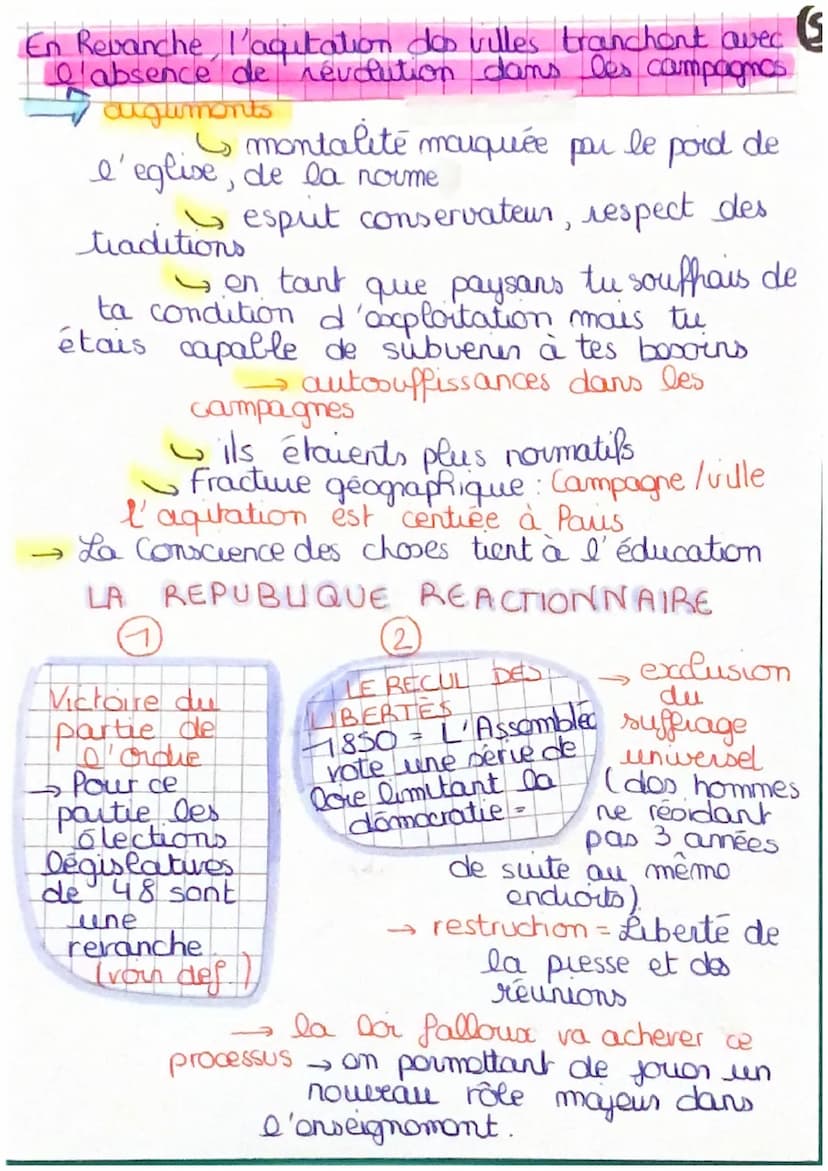 En Revanche, l'agitation des villes tranchent avec
l'absence de révolution dans les campagnes
5
→ arguments
↳ mentalité marquée par le poid de
l'eglise, de la norme
↳ esprit conservateur, respect des
traditions
↳ en tant que paysans tu souffrais de
ta condition d'exploitation mais tu
étais capable de subvenir à tes besoins
→ autosuffissances dans les
campagnes
↳ ils étaients plus normatifs
↳ Fracture géographique : Campagne/ville
l'agitation est centrée à Paris
→ La Conscience des choses tient à l'éducation
LA REPUBLIQUE REACTIONNAIRE
1
Victoire du
partie de
l'Ordre
→ Pour ce
partie les
élections
légisatives
de 48 sont
une
revanche
(voir def.)
2
LE RECUL DES
LIBERTÉS
1850 = L'Assemblée
vote une série de
loie limitant la
démocratie =
→ exclusion
du
suffrage
universel
(des hommes
ne résidant
pas 3 années
de suite au même
endroits)
→ restruction = Liberté de
la presse et des
réunions
→ la loi falloux va achever ce
processus → en permettant de jouer un
nouveau rôle majeur dans
l'enseignement.